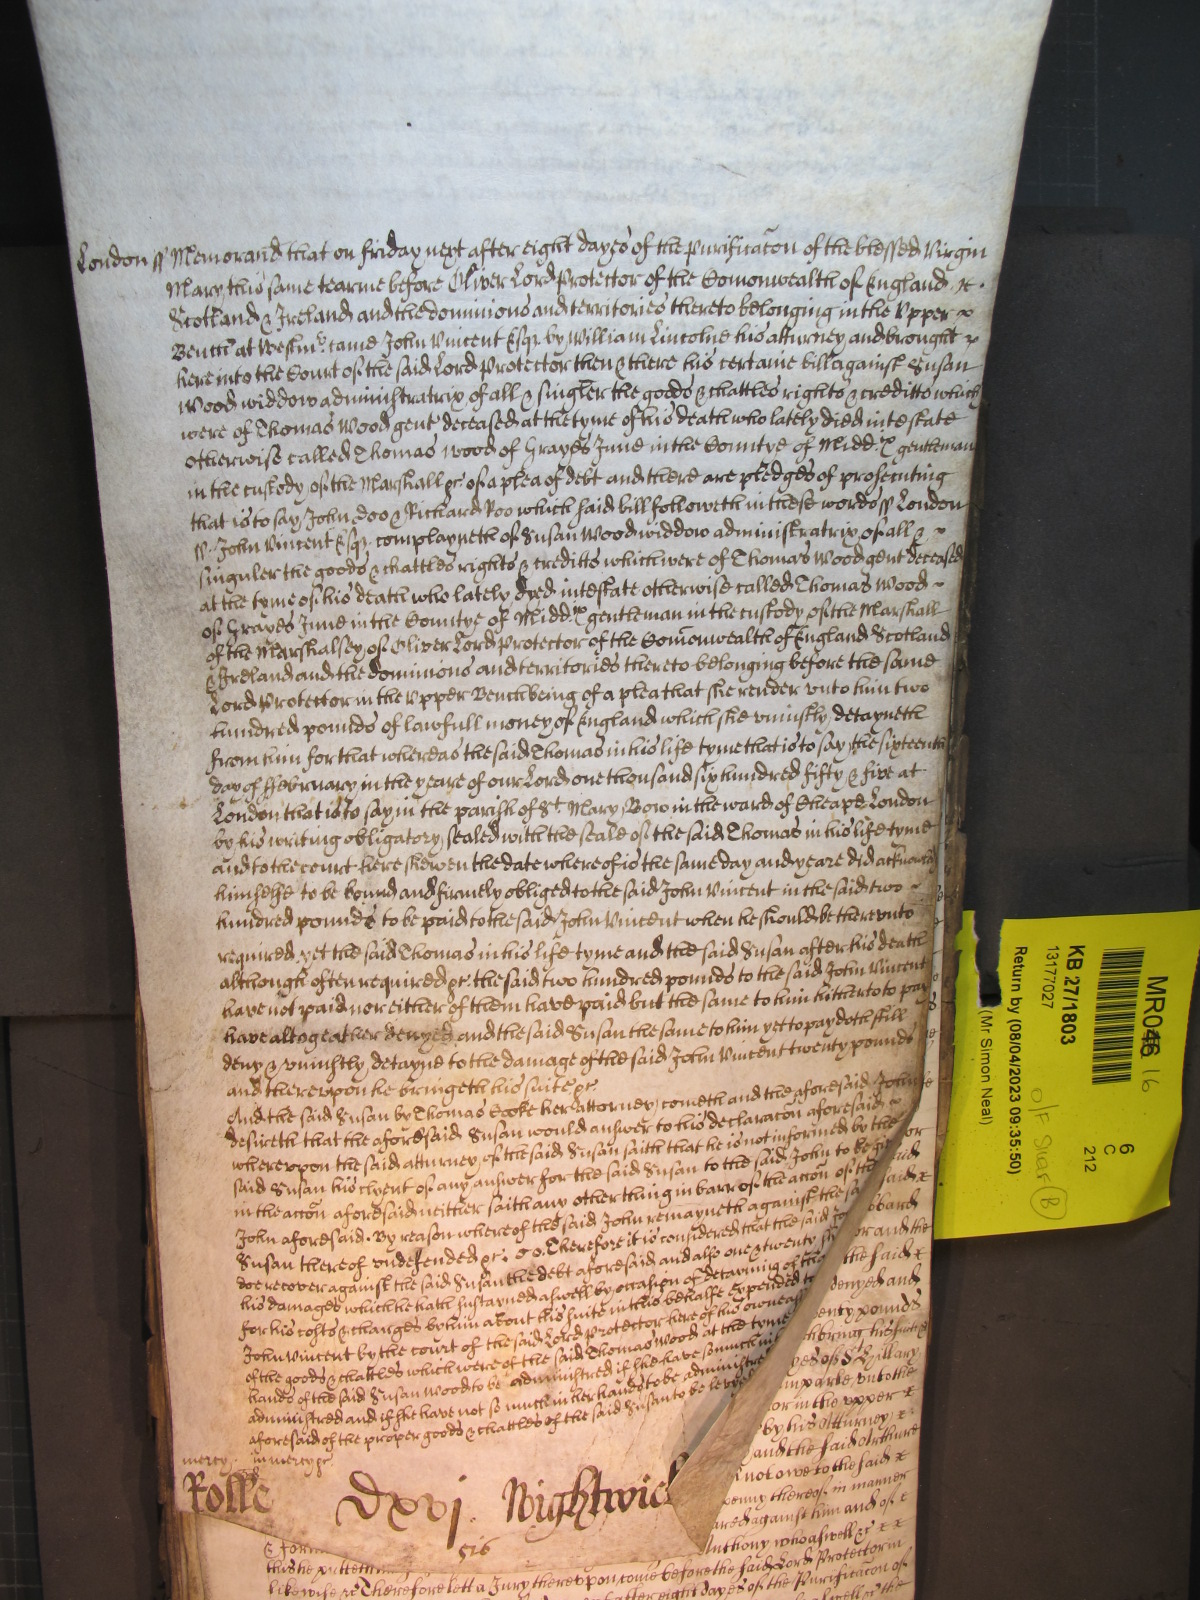 London ss Memorand that on friday next after eight dayes of the purificacon of the blessed Virgin
Mary this same tearme before Oliver Lord Protector of the Comonwealth of England &
Scotland & Ireland and the dominions and territories thereto belonging in the Upper
Bench at Westmr came John Vincent Esqr by William Lincolne his atturney and brought
here into the Court of the said Lord Protector then & there his certaine bill against Susan
Wood widdow administratrix of all & singler the goods & chattles rights & creditts which
were of Thomas Wood gent deceased at the tyme of his death who lately died intestate
otherwise called Thomas Wood of Grayes Inne in the Countye of Midd.x gentleman
in the custody of the Marshall &c of a plea of debt and there are pledges of prosecuting
that is to say John Doo & Richard Roo which said bill followeth in these words ss London
ss. John Vincent Esqr complayneth of Susan Wood widdow administratrix of all &
singuler the goods & chattles rights & creditts which were of Thomas Wood gent deceased
at the tyme of his death who lately dyed intestate otherwise called Thomas Wood
of Grayes Inne in the Countye of Midd.x gentleman in the custody of the Marshall
of the Marshalsey of Oliver Lord Protector of the Comonwealth of England Scotland
& Ireland and the dominions and territories thereto belonging before the same
Lord Protector in the Upper Bench being of a plea that she render unto him two
hundred pounds of lawfull money of England which she uniustly detayneth
from him for that whereas the said Thomas in his life tyme that is to say the sixteenth
day of ffebruary in the yeare of our Lord one thousand six hundred fifty & five at
London that is to say in the parish of St Mary Bow in the ward of Cheape London
by his writing obligatory sealed with the seale of the said Thomas in his life tyme
and to the court here shewen the date whereof is the same day and yeare did acknowledg
himselfe to be bound and firmely obliged to the said John Vincent in the said two
hundred pounds to be paid to the said John Vincent when he should be thereunto
required yet the said Thomas in his life tyme and the said Susan after his death
although often required &c the said two hundred pounds to the said John Vincent
have not paid nor either of them have paid but the same to him hitherto to pay
have altogeather denyed and the said Susan the same to him yet to pay doth still
deny & uniustly detayne to the damage of the said John Vincent twenty pounds
and thereupon he bringeth his suite &c.
And the said Susan by Thomas Cooke her attorney cometh and the aforesaid John
desireth that the aforesaid Susan would answer to his declaracon aforesaid
whereupon the said atturney of the said Susan saith that he is not informed by the
said Susan his clyent of any answer for the said Susan to the said John to be
in the accon aforesaid neither saith any other thing in barr of the accon of the
John aforesaid. By reason whereof the said John remayneth against the
Susan thereof undefended &c. Therefore it is considered that the said
doe recover against the said Susan the debt aforesaid and also one & twenty
his damages which he hath sustayned aswell by occasion of detayning of
for his costs & charges by him about his suite in this behalfe expended to
John Vincent by the court of the said Lord Protector here of his owne
of the goods & chattles which were of the said Thomas Wood at the tyme
hands of the said Susan Wood to be administred if she have so much in
administred and if she have not so much in her hands to be administred
aforesaid of the proper goods & chattles of the said Susan to be
mercy. in mercy &c.
Rolle Dxvj. Wightwick
516
likewise &c Therefore lett a Jury thereupon come before the said Lord Protector in
after eight dayes of the Purificacon of
or and the
the said
denyed and
twenty pounds
imparle unto the
or in the upper
by his Atturney
and the said Arthure
not owe to the said
penny thereof in manner
against him and of
Anthony who aswell &c
MR046 16
6
C
212
KB 27/1803
13177027
Return by (08/04/2023 09:35:50)
(Mr Simon Neal)